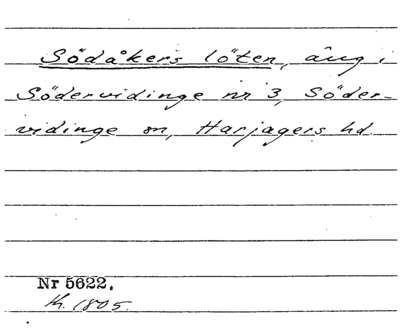 Södåkers löten, äng i
Södervidinge nr 3, Söder-
vidinge sn, Harjagers hd.
Nr 5622.
1805.